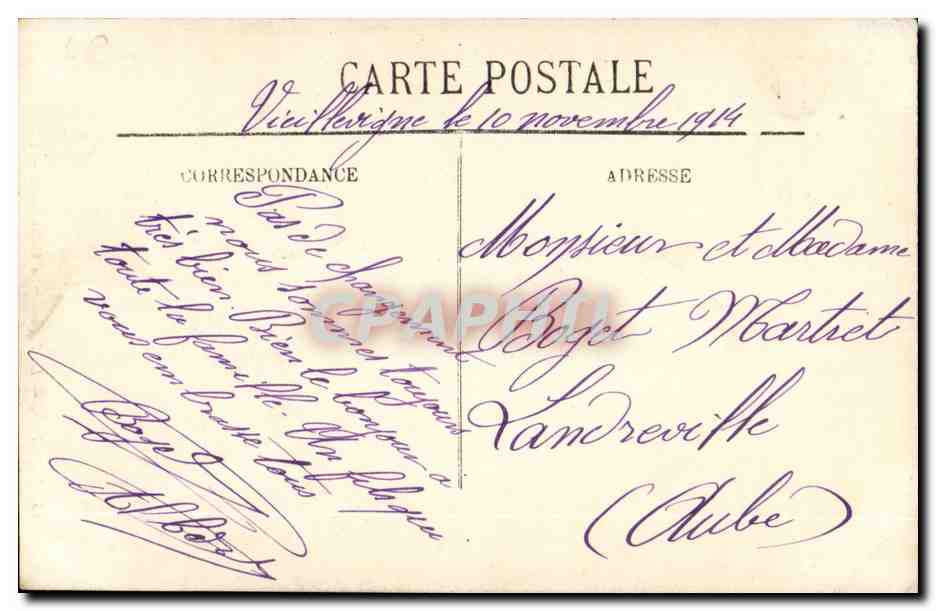 CARTE POSTALE
Vieillevigne le 10 novembre 1914
CORRESPONDANCE
Pas de changement
nous sommes toujours
très bien. Bien le bonjour à
toute la famille. Un fils qui
vous embrasse tous
Boget
Albert
ADRESSE
Monsieur et Madame
Boget Martret
Landreville
(Aube)
CPAPHIL